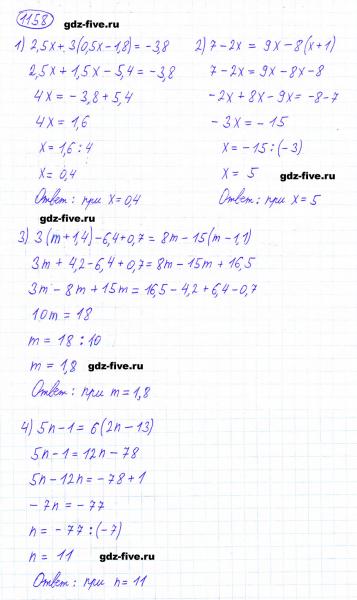 1158
gdz-five.ru
1) 2,5x + 3(0,5x - 1,8) = -3,8
2,5x + 1,5x - 5,4 = -3,8
4x = -3,8 + 5,4
4x = 1,6
x = 1,6 : 4
x = 0,4
Ответ: при x = 0,4
2) 7 - 2x = 9x - 8(x + 1)
7 - 2x = 9x - 8x - 8
-2x + 8x - 9x = -8 - 7
-3x = -15
x = -15 : (-3)
x = 5
gdz-five.ru
Ответ: при x = 5
gdz-five.ru
3) 3(m + 1,4) - 6,4 + 0,7 = 8m - 15(m - 1,1)
3m + 4,2 - 6,4 + 0,7 = 8m - 15m + 16,5
3m - 8m + 15m = 16,5 - 4,2 + 6,4 - 0,7
10m = 18
m = 18 : 10
m = 1,8
gdz-five.ru
Ответ: при m = 1,8
4) 5n - 1 = 6(2n - 13)
5n - 1 = 12n - 78
5n - 12n = -78 + 1
-7n = -77
n = -77 : (-7)
n = 11
gdz-five.ru
Ответ: при n = 11